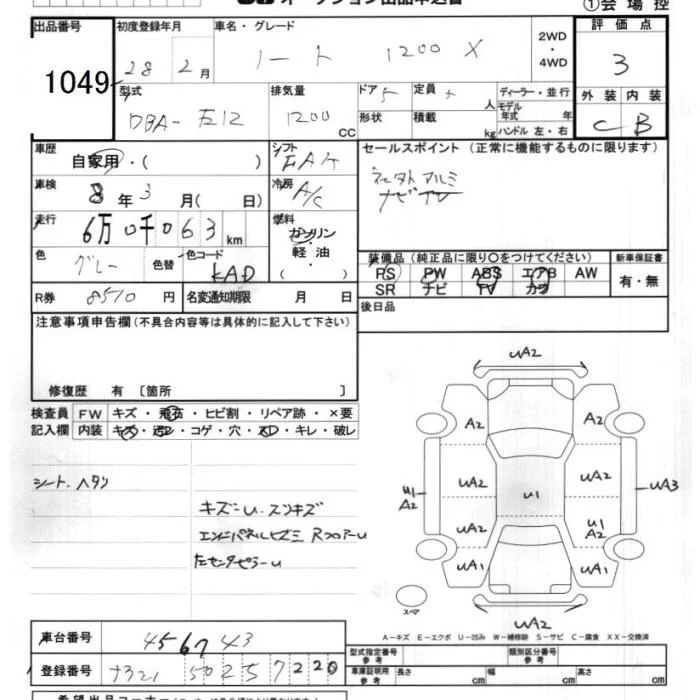 オークション出品申込書
①会場控
出品番号 初度登録年月 車名・グレード 評価点
1049 28年2月 ノート 1200 X 2WD・4WD 3
型式 排気量 ドア 5 定員 5 人 ディーラー・並行 外装 内装
DBA-E12 1200 CC 形状 積載 kg モデル年式 年 ハンドル 左・右 C B
車歴 自家用・( ) シフト FAT セールスポイント (正常に機能するものに限ります)
車検 8年3月( 日) 冷房 A/C
アルミ
ナビ TV
走行 6万0千063km 燃料 ガソリン・軽油・( )
色 グレー 色替 色コード KAD 装備品 (純正品に限り○をつけてください) 新車保証書
RS PW ABS エアB AW 有・無
SR ナビ TV カワ
R券 8510円 名変通知期限 月 日 後日品
注意事項申告欄(不具合内容等は具体的に記入して下さい)
修復歴 有 〔箇所 〕
検査員 FW キズ・飛石・ヒビ割・リペア跡・×要
記入欄 内装 キズ・汚れ・コゲ・穴・スレ・キレ・破レ
シート.ヘタリ
キズ=U.スリキズ
エンドパネルヒズミ RフロアーU
左センターピラーU
UA2
A2 A2
UA2 UA2
U1 A2 U1 UA3
UA2 U1 A2
UA1 UA1
スペア
UA2
A-キズ E-エクボ U-凹み W-補修跡 S-サビ C-腐食 XX-交換済
車台番号 456743
型式指定番号 参考 類別区分番号 参考
登録番号 50257220
車庫証明用 参考 長さ cm 幅 cm 高さ cm
希望出品コーナー